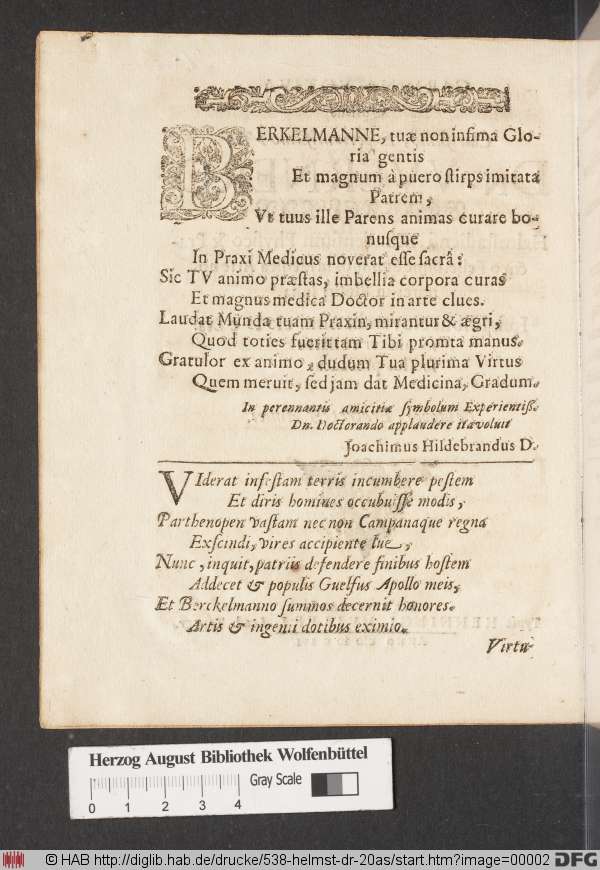 BERKELMANNE, tuæ non infima Glo-
ria gentis
Et magnum à puero stirps imitata
Patrem,
Vt tuus ille Parens animas curare bo-
nusque
In Praxi Medicus noverat esse sacrâ:
Sic TV animo præstas, imbellia corpora curas
Et magnus medica Doctor in arte clues.
Laudat Munda tuam Praxin, mirantur & ægri,
Quod toties fuerit tam Tibi promta manus.
Gratulor ex animo, dudum Tua plurima Virtus
Quem meruit, sed jam dat Medicina, Gradum.
In perennantis amicitiæ symbolum Experientiss.
Dn. Doctorando applaudere ita voluit
Joachimus Hildebrandus D.
VIderat infestam terris incumbere pestem
Et diris homines occubuisse modis,
Parthenopen vastam nec non Campanaque regna
Exscindi, vires accipiente lue,
Nunc, inquit, patriis defendere finibus hostem
Addecet & populis Guelfus Apollo meis,
Et Berckelmanno summos decernit honores.
Artis & ingenii dotibus eximio.
Virtu-
Herzog August Bibliothek Wolfenbüttel
Gray Scale
0 1 2 3 4
© HAB http://diglib.hab.de/drucke/538-helmst-dr-20as/start.htm?image=00002 DFG